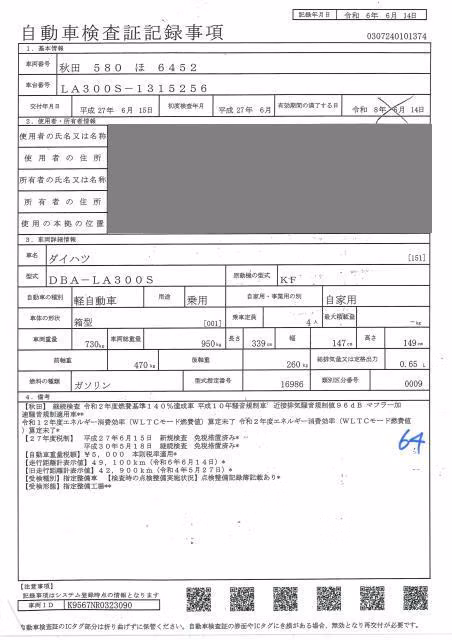 記録年月日 令和 6年 6月 14日
自動車検査証記録事項
0307240101374
1．基本情報
車両番号 秋田 580 ほ 6452
車台番号 LA300S-1315256
交付年月日 平成 27年 6月 15日 初度検査年月 平成 27年 6月 有効期間の満了する日 令和 8年 6月 14日
2．使用者・所有者情報
使用者の氏名又は名称
使用者の住所
所有者の氏名又は名称
所有者の住所
使用の本拠の位置
3．車両詳細情報
車名 ダイハツ [151]
型式 DBA-LA300S 原動機の型式 KF
自動車の種別 軽自動車 用途 乗用 自家用・事業用の別 自家用
車体の形状 箱型 [001] 乗車定員 4人 最大積載量 -kg
車両重量 730kg 車両総重量 950kg 長さ 339cm 幅 147cm 高さ 149cm
前軸重 470kg 後軸重 260kg 総排気量又は定格出力 0.65L
燃料の種類 ガソリン 型式指定番号 16986 類別区分番号 0009
4．備考
【秋田】 継続検査 令和2年度燃費基準140%達成車 平成10年騒音規制車 近接排気騒音規制値96dB マフラー加
速騒音規制適用車**
令和12年度エネルギー消費効率（WLTCモード燃費値）算定未了 令和2年度エネルギー消費効率（WLTCモード燃費値
）算定未了*
【27年度税制】 平成27年6月15日 新規検査 免税措置済み*
平成30年5月18日 継続検査 免税措置済み*
【自動車重量税額】¥5,000 本則税率適用*
【走行距離計表示値】49,100km（令和6年6月14日）*
【旧走行距離計表示値】42,900km（令和4年5月27日）*
【受検種別】指定整備車 【検査時の点検整備実施状況】点検整備記録簿記載あり*
【受検形態】指定整備工場**
64
【注意事項】
記載事項はシステム登録時点の情報となります
車両ID K9567NR0323090
自動車検査証のICタグ部分は折り曲げずに保管ください。自動車検査証の券面やICタグにき損がある場合、無効となり再交付が必要です。